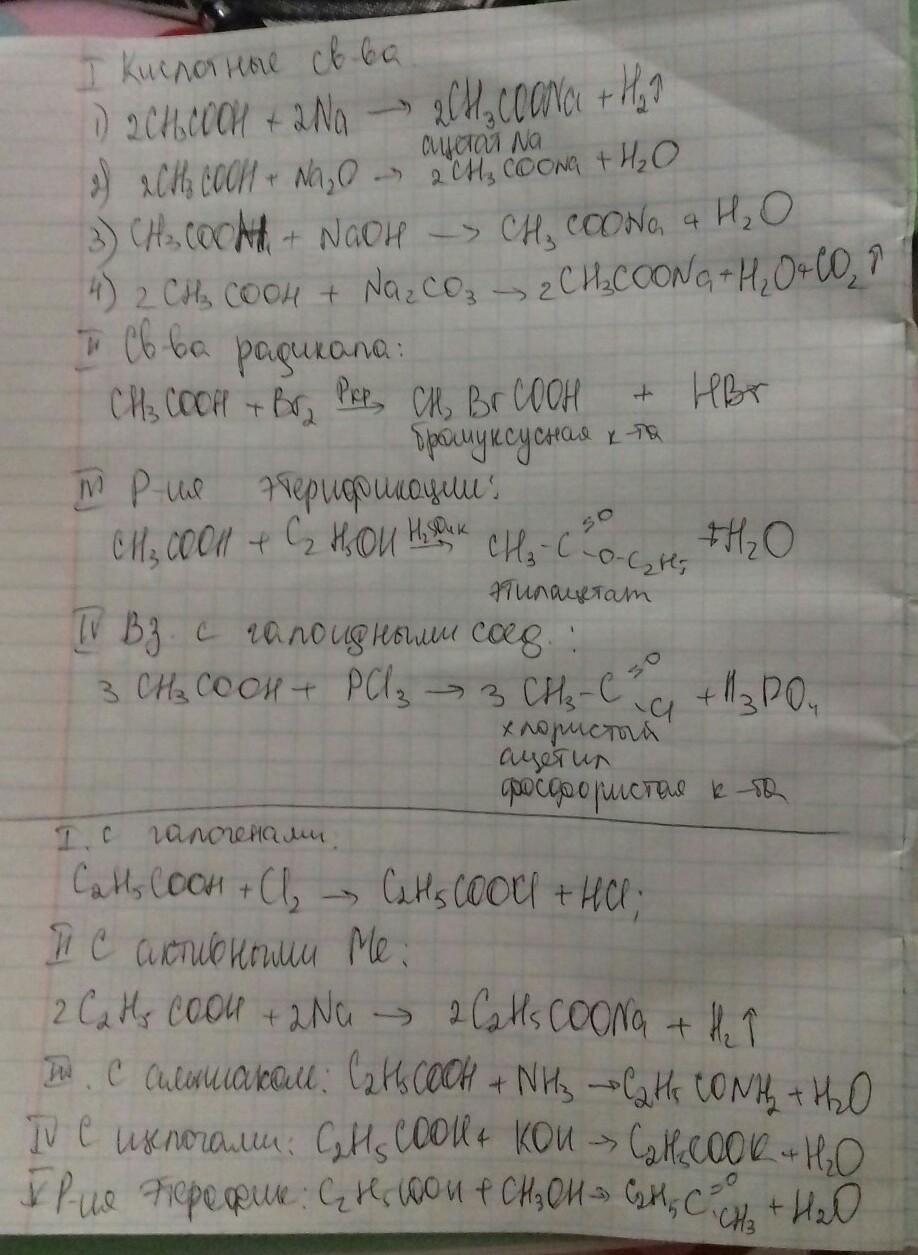 I Кислотные св-ва
1) 2CH₃COOH + 2Na → 2CH₃COONa + H₂↑
ацетат Na
2) 2CH₃COOH + Na₂O → 2CH₃COONa + H₂O
3) CH₃COOH + NaOH → CH₃COONa + H₂O
4) 2CH₃COOH + Na₂CO₃ → 2CH₃COONa + H₂O + CO₂↑
II Св-ва радикала:
CH₃COOH + Br₂ –Pкр→ CH₂BrCOOH + HBr
бромуксусная к-та
III Р-ия этерификации:
CH₃COOH + C₂H₅OH –H₂SO₄к→ CH₃-C=O-O-C₂H₅ + H₂O
этилацетат
IV Вз. с галоидными соед.:
3CH₃COOH + PCl₃ → 3CH₃-C=O-Cl + H₃PO₄
хлористый
ацетил
фосфористая к-та
I. с галогенами:
C₂H₅COOH + Cl₂ → C₂H₅COOCl + HCl;
II С активными Me:
2C₂H₅COOH + 2Na → 2C₂H₅COONa + H₂↑
III. С аммиаком: C₂H₅COOH + NH₃ → C₂H₅CONH₂ + H₂O
IV С щелочами: C₂H₅COOH + KOH → C₂H₅COOK + H₂O
V Р-ия этерефик: C₂H₅COOH + CH₃OH → C₂H₅C=O-CH₃ + H₂O